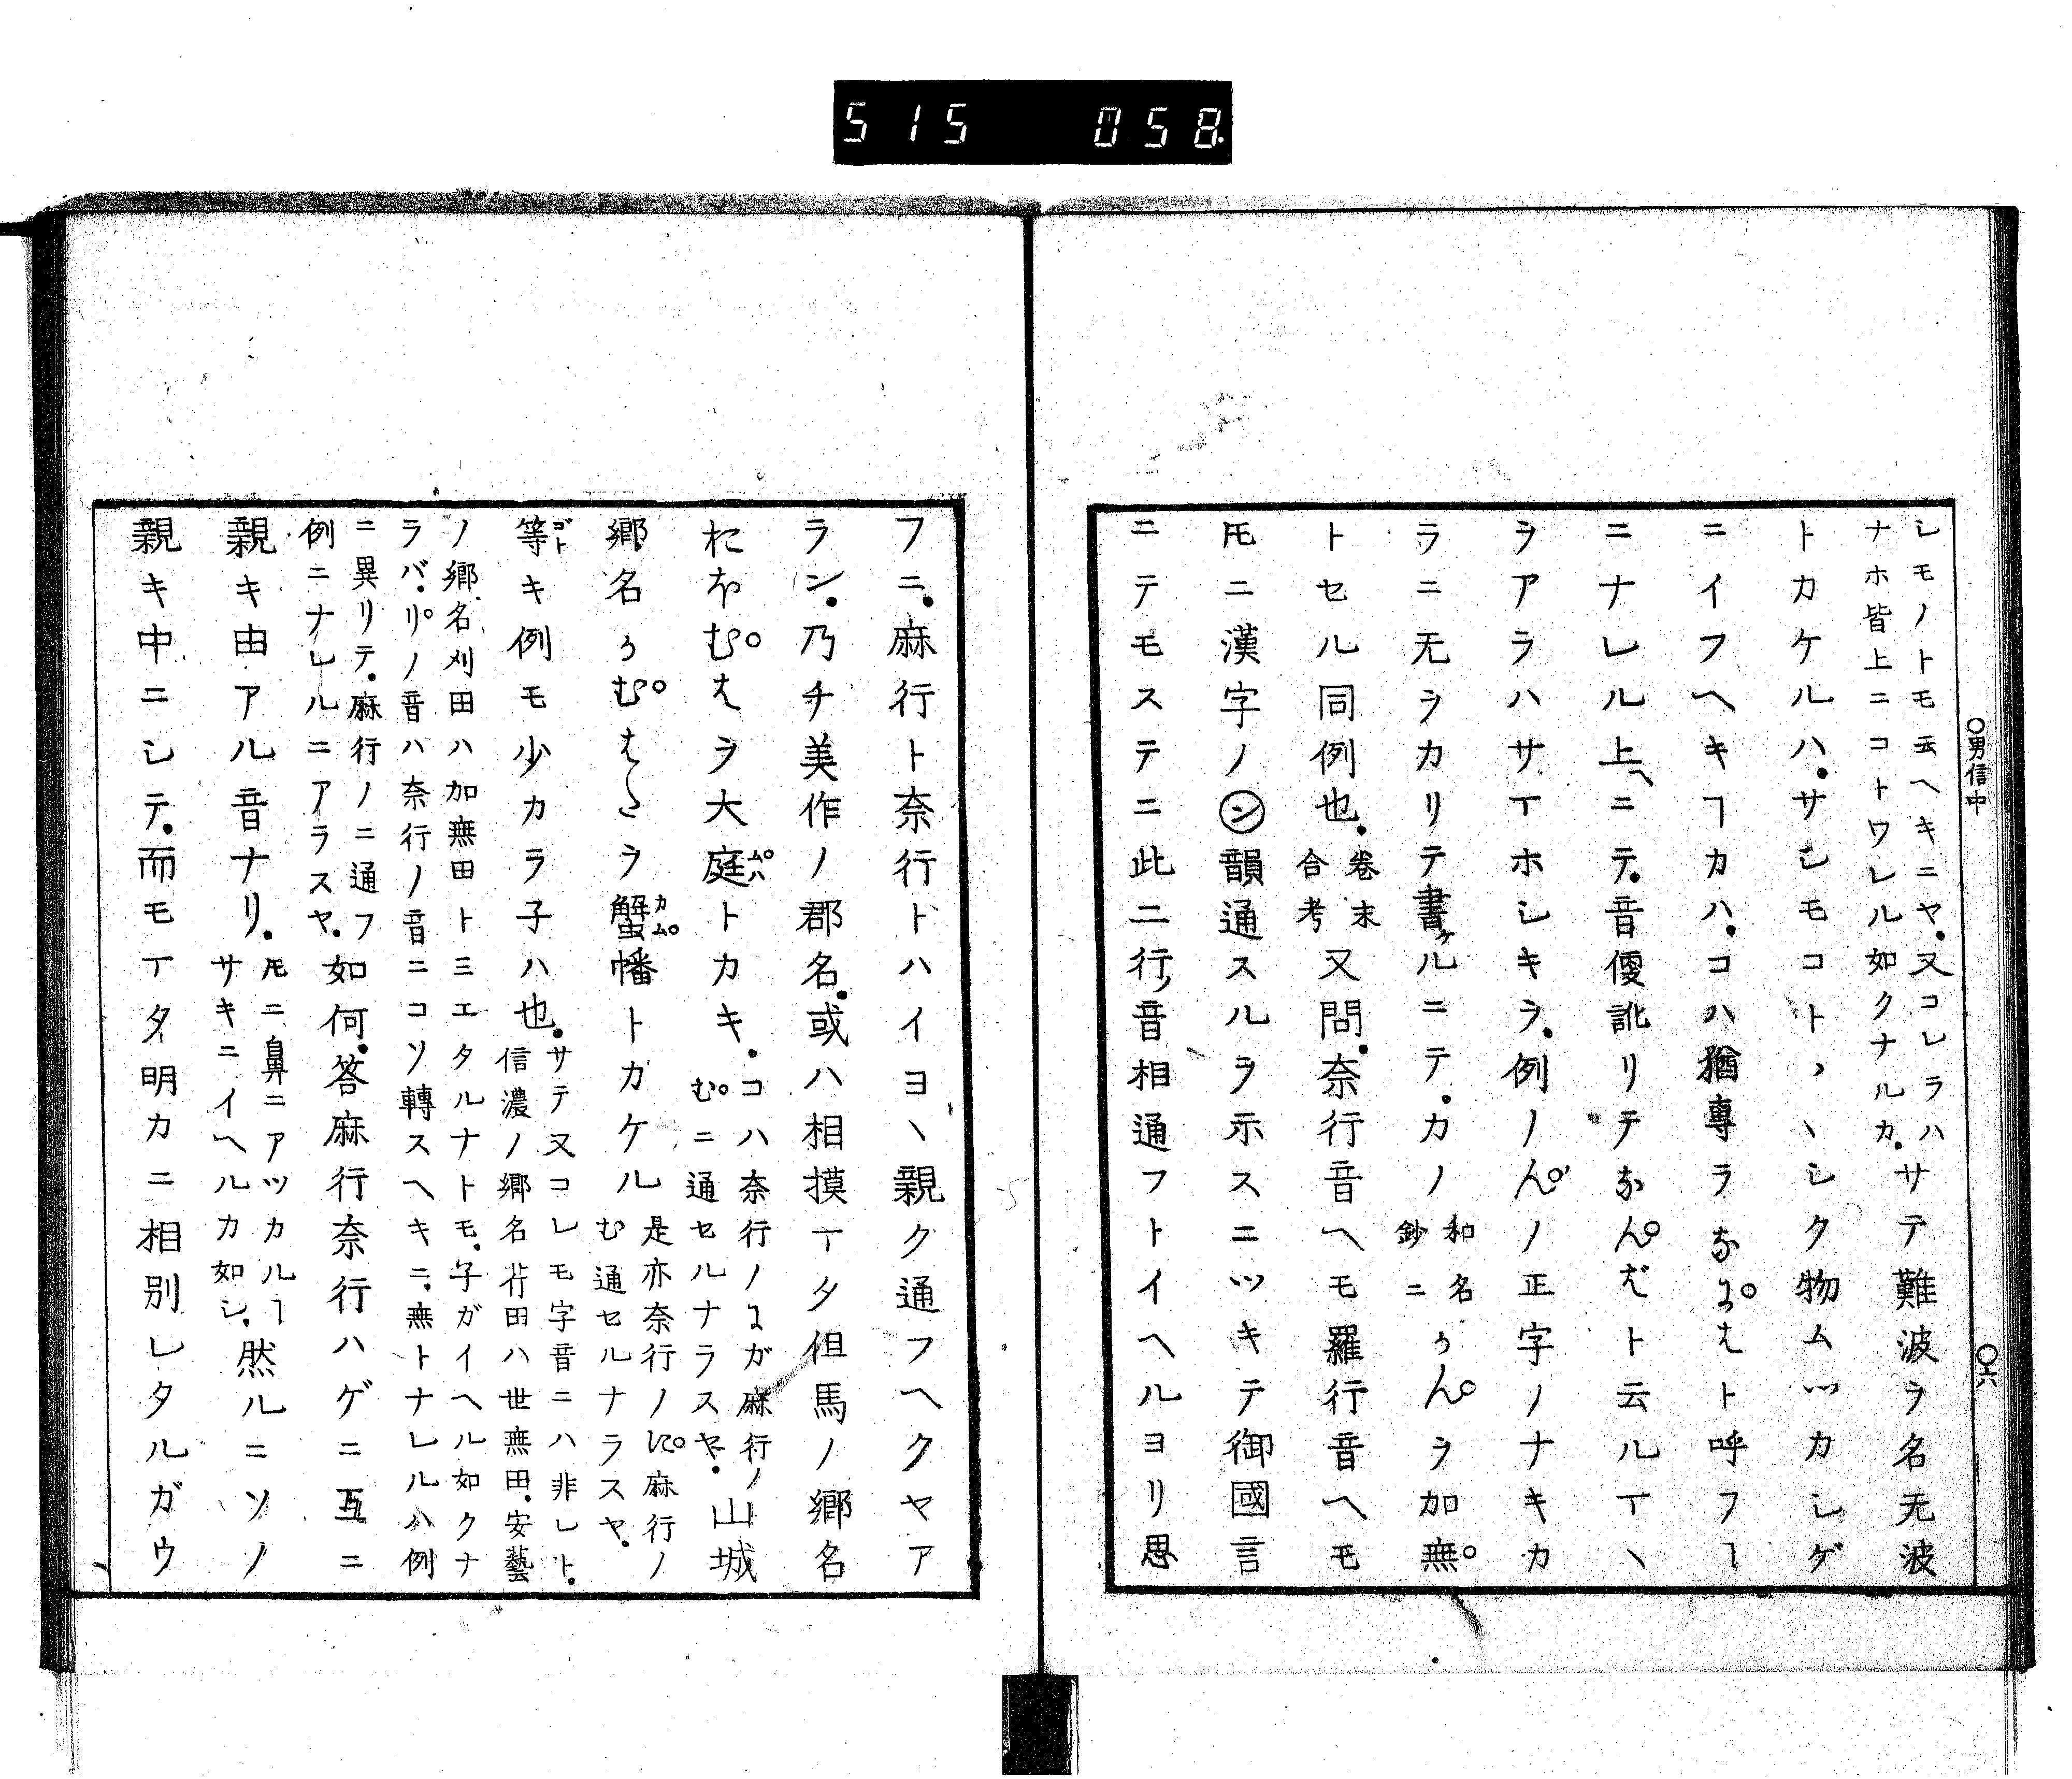 515 058
○男信中
○六
シモノトモ云ヘキニヤ.又コレラハ
ナホ皆上ニコトワレル如クナルカ.
サテ難波ヲ名无波
トカケルハ.サシモコトヽヽシタ物ムツカシゲ
ニイフヘキヿカハ.コハ猶專ラなに゚はト呼フヿ
ニナレル上ヘニテ.音便訛リテなん゚だト云ルヿヽ
ヲアラハサマホシキラ.例ノん゚ノ正字ノナキカ
ラニ无ヲカリテ書ケルニテ.カノ
和名
鈔ニ
かん゚ヲ加無゚
トセル同例也.
卷末
合考
又問.奈行音ヘモ羅行音ヘモ
𪜈ニ漢字ノン韻通スルヲ示スニツキテ御國言
ニテモステニ此二行ノ音相通フトイヘルヨリ思
フニ.麻行ト奈行トハイヨヽ親ク通フヘクヤア
ラン.乃チ美作ノ郡名.或ハ相摸マタ但馬ノ郷名
おほむ゚はヲ大庭ム゚ハトカキ.
コハ奈行ノにガ麻行ノ
む゚ニ通セルナラスヤ.
山城
郷名かむ゚はたヲ蟹カム゚幡トカケル
是亦奈行ノに゚麻行ノ
む通セルナラスヤ.
等ゴトキ例モ少カラ子ハ也.
サテ又コレモ字音ニハ非レト.
信濃ノ郷名荇田ハ世無田.安藝
ノ郷名刈田ハ加無田トミエタルナトモ.子ガイヘル如クナ
ラバ.リ゚ノ音ハ奈行ノ音ニコソ轉スヘキニ.無トナレルハ例
ニ異リテ.麻行ノニ通フ
例ニナレルニアラスヤ.
如何.答麻行奈行ハゲニ互ニ
親キ由アル音ナリ.
𪜈ニ鼻ニアツカルヿ
サキニイヘルカ如シ.
然ルニソノ
親キ中ニシテ.而モマタ明カニ相別レタルガウ